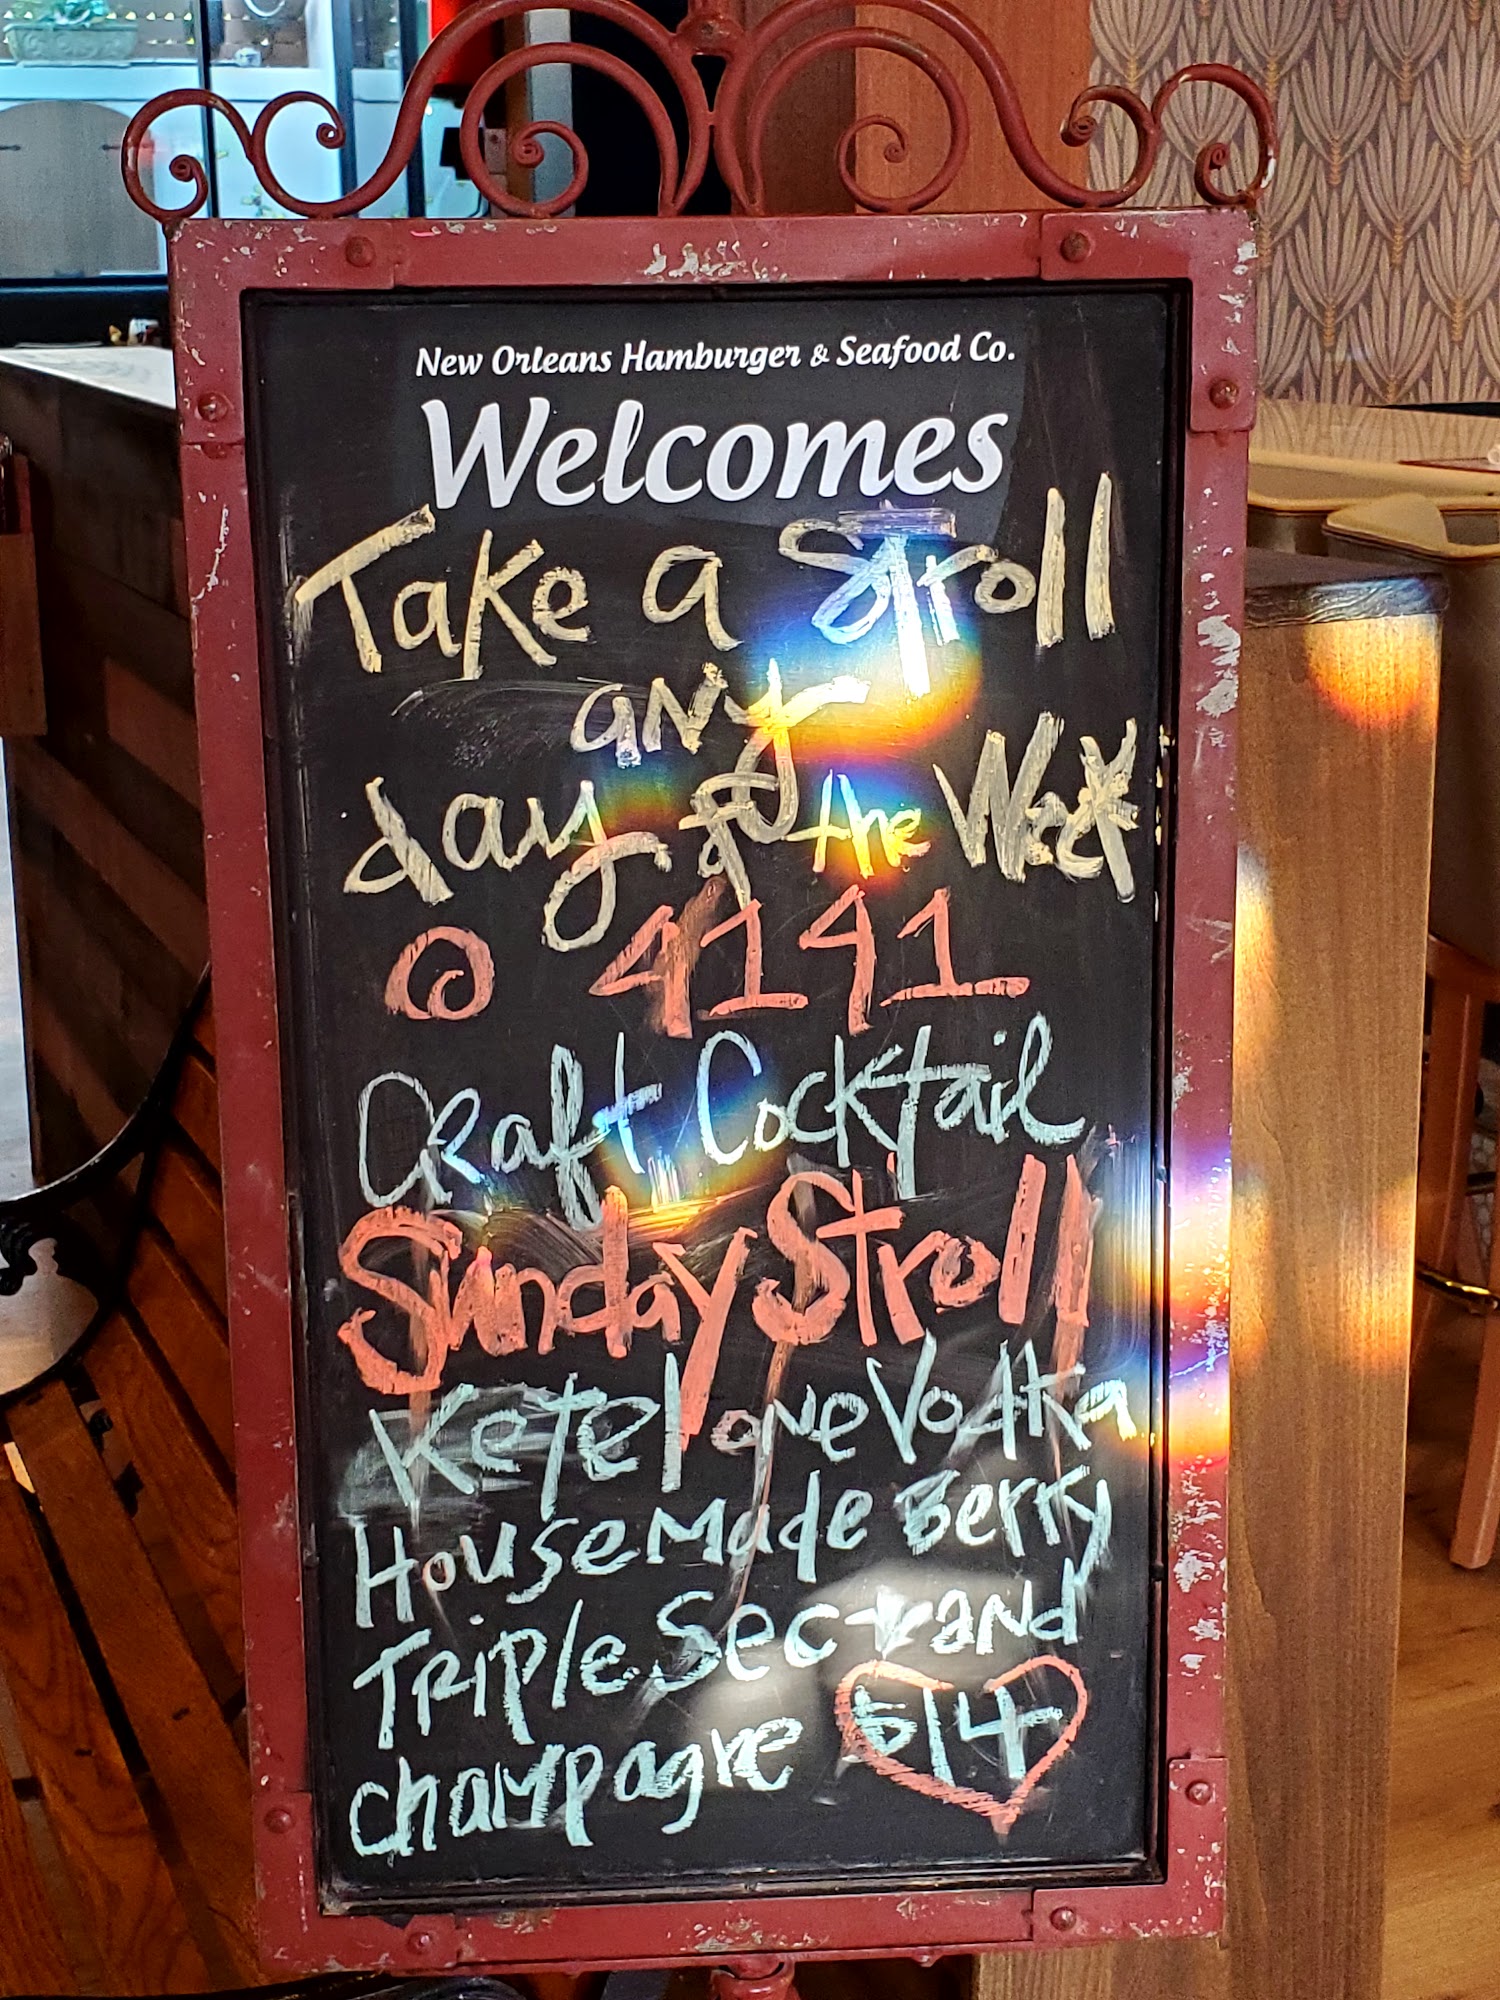 New Orleans Hamburger & Seafood Co.
Welcomes
Take a Stroll
any
day of the Week
@ 4141
Craft Cocktail
Sunday Stroll
Ketel one Vodka
House Made Berry
Triple Sec and
champagne $14